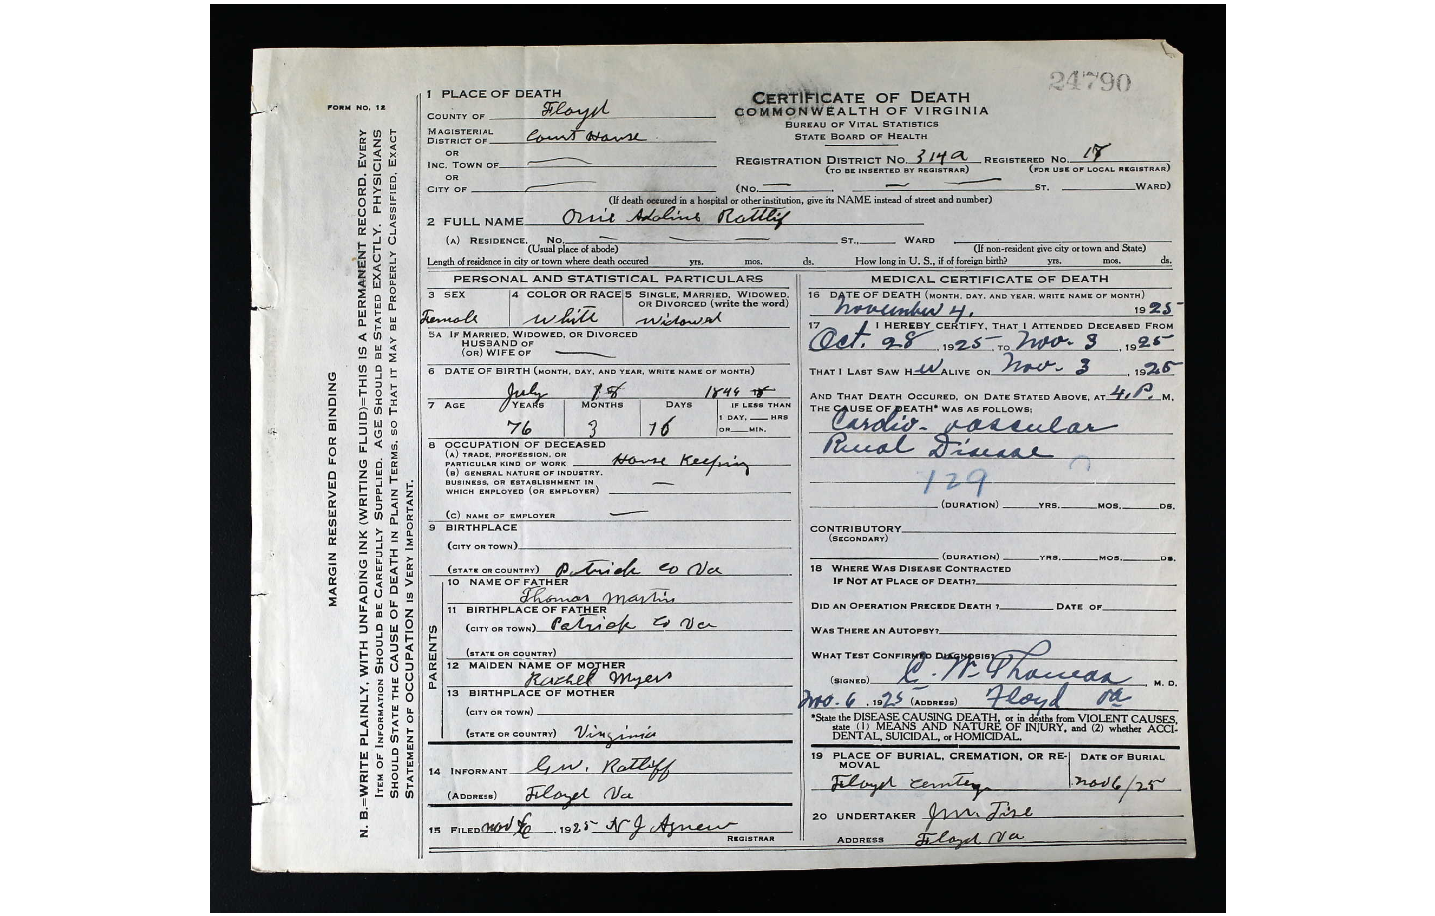 24790
FORM NO. 12
MARGIN RESERVED FOR BINDING
N. B.=WRITE PLAINLY, WITH UNFADING INK (WRITING FLUID)=THIS IS A PERMANENT RECORD. EVERY
ITEM OF INFORMATION SHOULD BE CAREFULLY SUPPLIED. AGE SHOULD BE STATED EXACTLY. PHYSICIANS
SHOULD STATE THE CAUSE OF DEATH IN PLAIN TERMS, SO THAT IT MAY BE PROPERLY CLASSIFIED. EXACT
STATEMENT OF OCCUPATION IS VERY IMPORTANT.
1 PLACE OF DEATH
COUNTY OF Floyd
MAGISTERIAL
DISTRICT OF Court House
OR
INC. TOWN OF
OR
CITY OF
CERTIFICATE OF DEATH
COMMONWEALTH OF VIRGINIA
BUREAU OF VITAL STATISTICS
STATE BOARD OF HEALTH
REGISTRATION DISTRICT NO. 314a REGISTERED NO. 18
(TO BE INSERTED BY REGISTRAR) (FOR USE OF LOCAL REGISTRAR)
(NO. ST. WARD)
(If death occured in a hospital or other institution, give its NAME instead of street and number)
2 FULL NAME Orrie Ratliff
(A) RESIDENCE. NO. ST., WARD
(Usual place of abode) (If non-resident give city or town and State)
Length of residence in city or town where death occured yrs. mos. ds. How long in U. S., if of foreign birth? yrs. mos. ds.
PERSONAL AND STATISTICAL PARTICULARS
3 SEX 4 COLOR OR RACE 5 SINGLE, MARRIED, WIDOWED,
OR DIVORCED (write the word)
Female White Widowed
5A IF MARRIED, WIDOWED, OR DIVORCED
HUSBAND OF
(OR) WIFE OF
6 DATE OF BIRTH (MONTH, DAY, AND YEAR, WRITE NAME OF MONTH)
July 18 1849
7 AGE YEARS MONTHS DAYS IF LESS THAN
1 DAY, HRS
OR MIN.
76 3 16
8 OCCUPATION OF DECEASED
(A) TRADE, PROFESSION, OR
PARTICULAR KIND OF WORK House Keeping
(B) GENERAL NATURE OF INDUSTRY,
BUSINESS, OR ESTABLISHMENT IN
WHICH EMPLOYED (OR EMPLOYER)
(C) NAME OF EMPLOYER
9 BIRTHPLACE
(CITY OR TOWN)
(STATE OR COUNTRY) Patrick Co Va
PARENTS
10 NAME OF FATHER
Thomas Martin
11 BIRTHPLACE OF FATHER
(CITY OR TOWN) Patrick Co Va
(STATE OR COUNTRY)
12 MAIDEN NAME OF MOTHER
Rachel Myers
13 BIRTHPLACE OF MOTHER
(CITY OR TOWN)
(STATE OR COUNTRY) Virginia
14 INFORMANT G.W. Ratliff
(ADDRESS) Floyd Va
15 FILED Nov 6, 1925 N J Agnew
REGISTRAR
MEDICAL CERTIFICATE OF DEATH
16 DATE OF DEATH (MONTH, DAY, AND YEAR, WRITE NAME OF MONTH)
November 4. 1925
17 I HEREBY CERTIFY, THAT I ATTENDED DECEASED FROM
Oct. 28, 1925, TO Nov. 3, 1925
THAT I LAST SAW Her ALIVE ON Nov. 3, 1925
AND THAT DEATH OCCURED, ON DATE STATED ABOVE, AT 4.P. M.
THE CAUSE OF DEATH* WAS AS FOLLOWS:
Cardio-vascular
Renal Disease
129
(DURATION) YRS. MOS. DS.
CONTRIBUTORY
(SECONDARY)
(DURATION) YRS. MOS. DS.
18 WHERE WAS DISEASE CONTRACTED
IF NOT AT PLACE OF DEATH?
DID AN OPERATION PRECEDE DEATH ? DATE OF
WAS THERE AN AUTOPSY?
WHAT TEST CONFIRMED DIAGNOSIS?
(SIGNED) C. W. Thomas M. D.
Nov. 6, 1925 (ADDRESS) Floyd Va
*State the DISEASE CAUSING DEATH, or in deaths from VIOLENT CAUSES,
state (1) MEANS AND NATURE OF INJURY, and (2) whether ACCI-
DENTAL, SUICIDAL, or HOMICIDAL.
19 PLACE OF BURIAL, CREMATION, OR RE-
MOVAL
DATE OF BURIAL
Floyd Cemtery Nov 6/25
20 UNDERTAKER
ADDRESS Floyd Va